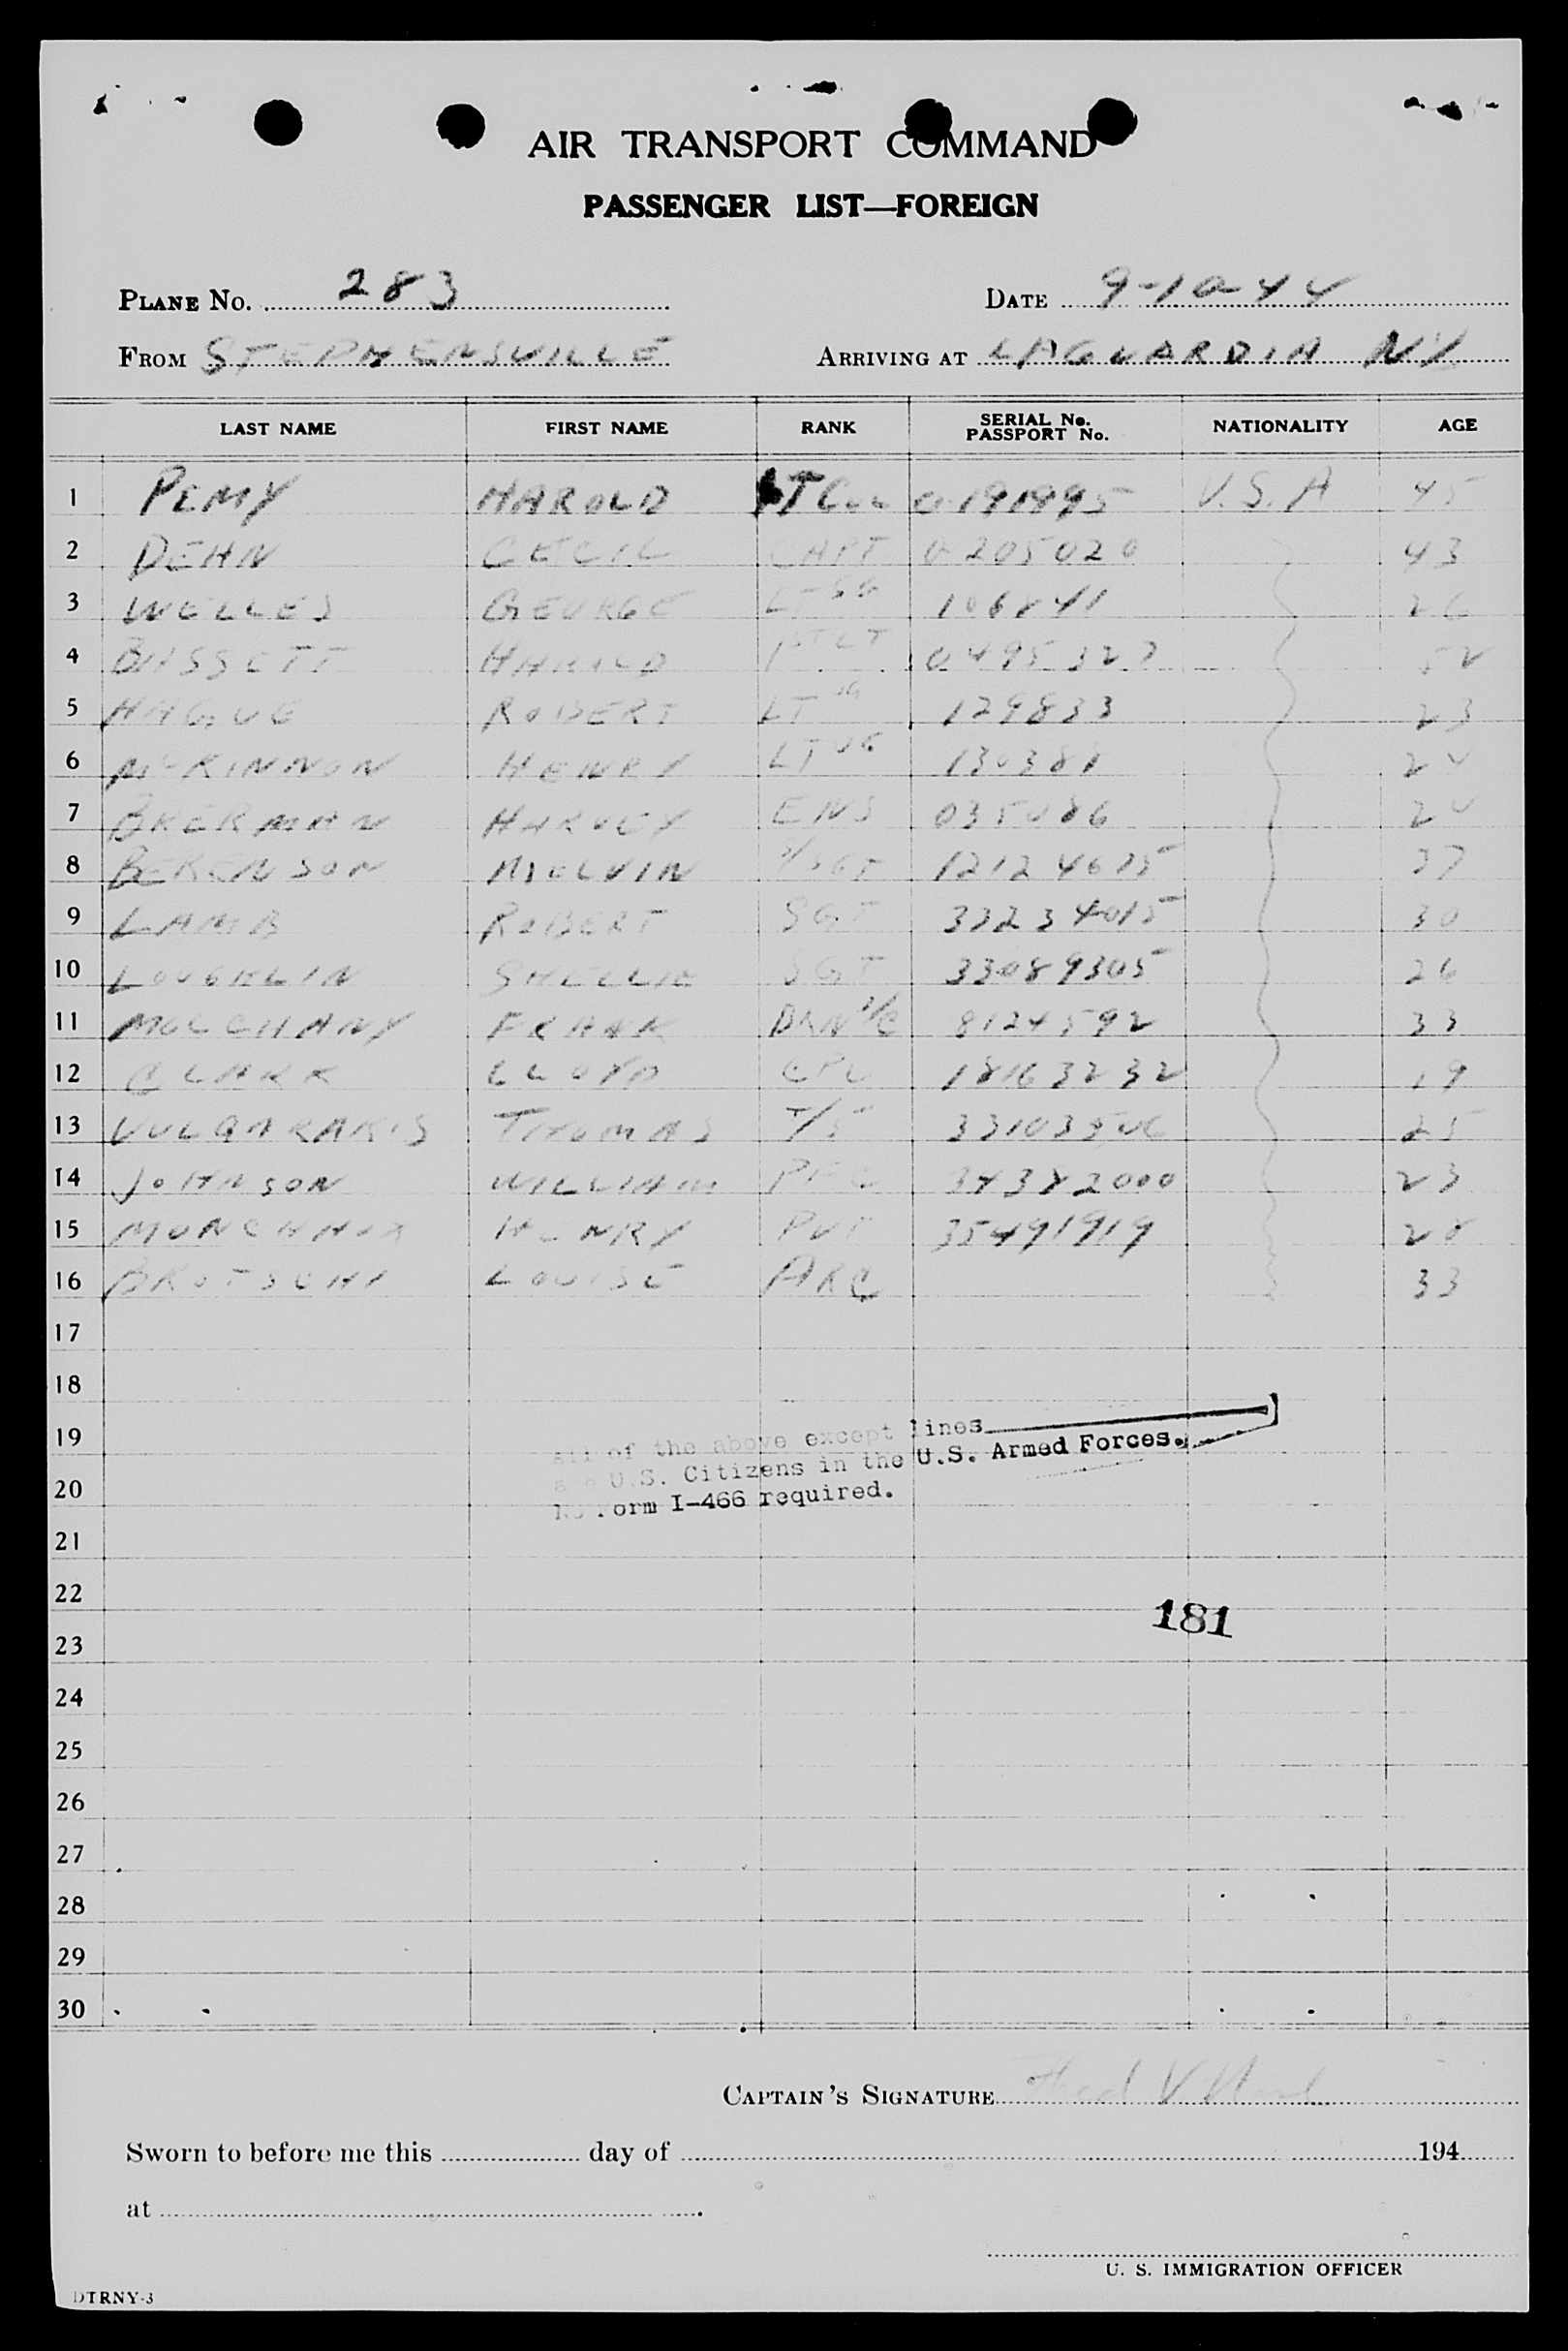 AIR TRANSPORT COMMAND
PASSENGER LIST—FOREIGN
PLANE NO. 283 DATE 9-10-44
FROM STEPHENSVILLE ARRIVING AT LAGUARDIA NY
LAST NAME FIRST NAME RANK SERIAL No. PASSPORT No. NATIONALITY AGE
1 HAROLD LT COL U.S.A 45
2 DEHN CECIL CAPT 0-205020 43
3 WELLES GEORGE LT SG 26
4 BASSETT HAROLD 1ST LT 52
5 HAGUE ROBERT LT 129833 23
6 McKINNON HENRY LT JG
7 HARVEY ENS
8 BERENSON MELVIN 37
9 LAMB ROBERT SGT 33234015 30
10 LOUGHLIN SHELLIE SGT 33089305 26
11 FRANK 8124592 33
12 CLARK LLOYD CPL 18163232 19
13 VULGARAKIS THOMAS T/5 25
14 JOHNSON WILLIAM PFC 34382000 23
15 HENRY PVT 35491919 28
16 BROTSCHY LOUISE ARC 33
17
18
19
20
21
22
23
24
25
26
27
28
29
30
all of the above except lines
are U.S. Citizens in the U.S. Armed Forces.
No Form I-466 required.
181
CAPTAIN'S SIGNATURE
Sworn to before me this day of 194
at
U. S. IMMIGRATION OFFICER
DTRNY-3